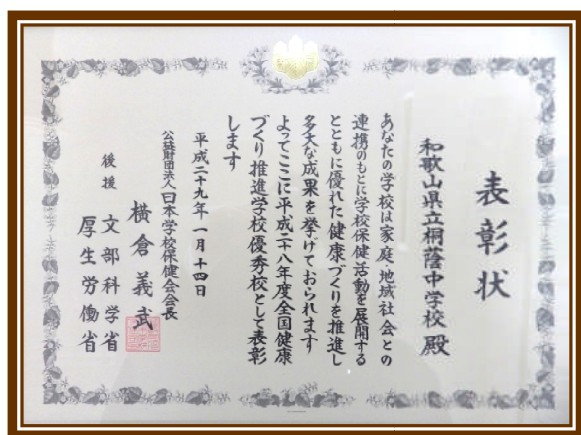 表彰状
和歌山県立桐蔭中学校 殿
あなたの学校は家庭地域社会との
連携のもとに学校保健活動を展開する
とともに優れた健康づくりを推進し
多大な成果を挙げておられます
よってここに平成二十八年度全国健康
づくり推進学校優秀校として表彰
します
平成二十九年一月十四日
公益財団法人日本学校保健会会長
横倉義武
後援 文部科学省
厚生労働省